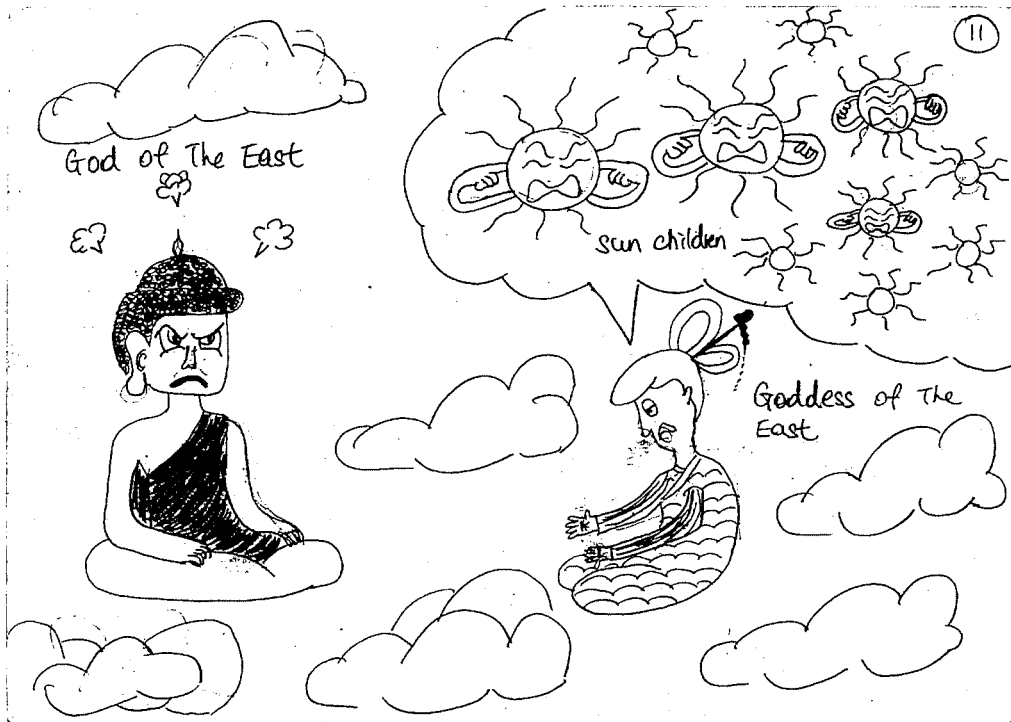 11
God of The East
sun children
Goddess of The
East